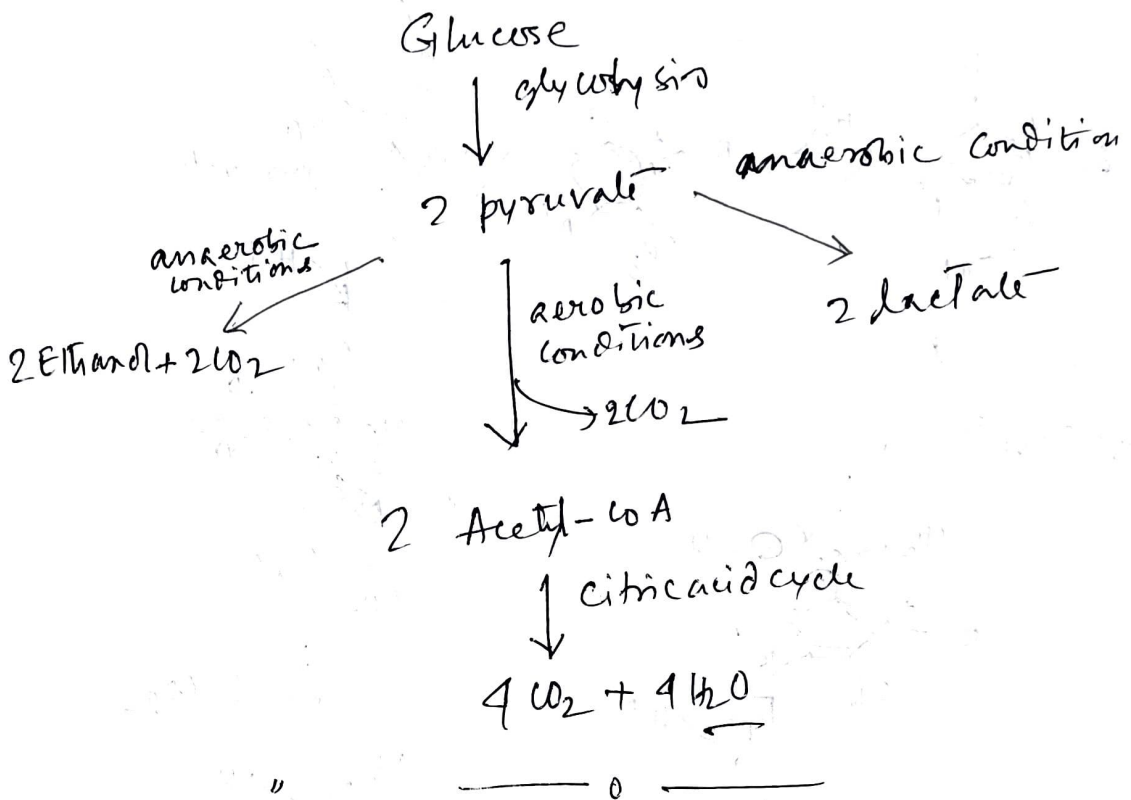 Glucose
glycolysis
2 pyruvate
anaerobic condition
anaerobic
conditions
2 Ethanol + 2CO2
aerobic
conditions
2CO2
2 lactate
2 Acetyl-CoA
Citric acid cycle
4 CO2 + 4 H2O
"
0